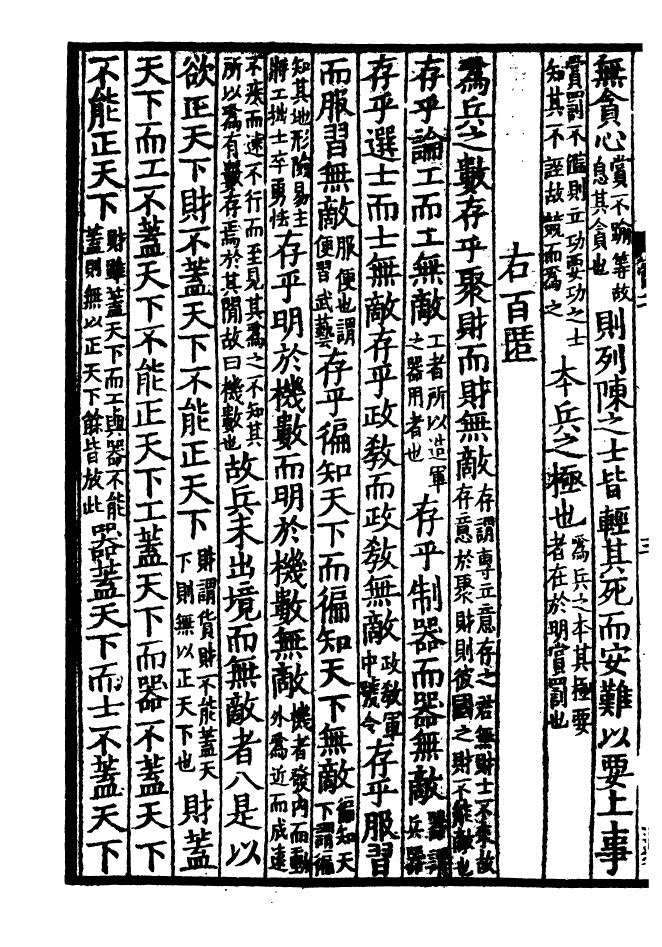 無貪心賞不踰等故息其貪也則列陳之士皆輕其死而安難以要上事
賞罰不濫則立功要功之士知其不誣故競而爲之本兵之極也爲兵之本其極要者在於明賞罰也
右百匿
爲兵之數存乎聚財而財無敵存謂專立意存之君無財士不來故存意於聚財則彼國之財不能敵也
存乎論工而工無敵工者所以造軍之器用者也存乎制器而器無敵器謂兵器
存乎選士而士無敵存乎政敎而政敎無敵政敎軍中號令存乎服習
而服習無敵服便也謂便習武藝存乎徧知天下而徧知天下無敵徧知天下謂徧
知其地形險易主將工拙士卒勇怯存乎明於機數而明於機數無敵機者發內而動外爲近而成遠
不疾而速不行而至見其爲之不知其所以爲有數存焉於其閒故曰機數也故兵未出境而無敵者八是以
欲正天下財不蓋天下不能正天下財謂貨財不能蓋天下則無以正天下也財蓋
天下而工不蓋天下不能正天下工蓋天下而器不蓋天下
不能正天下財雖蓋天下而工與器不能蓋則無以正天下餘皆放此器蓋天下而士不蓋天下